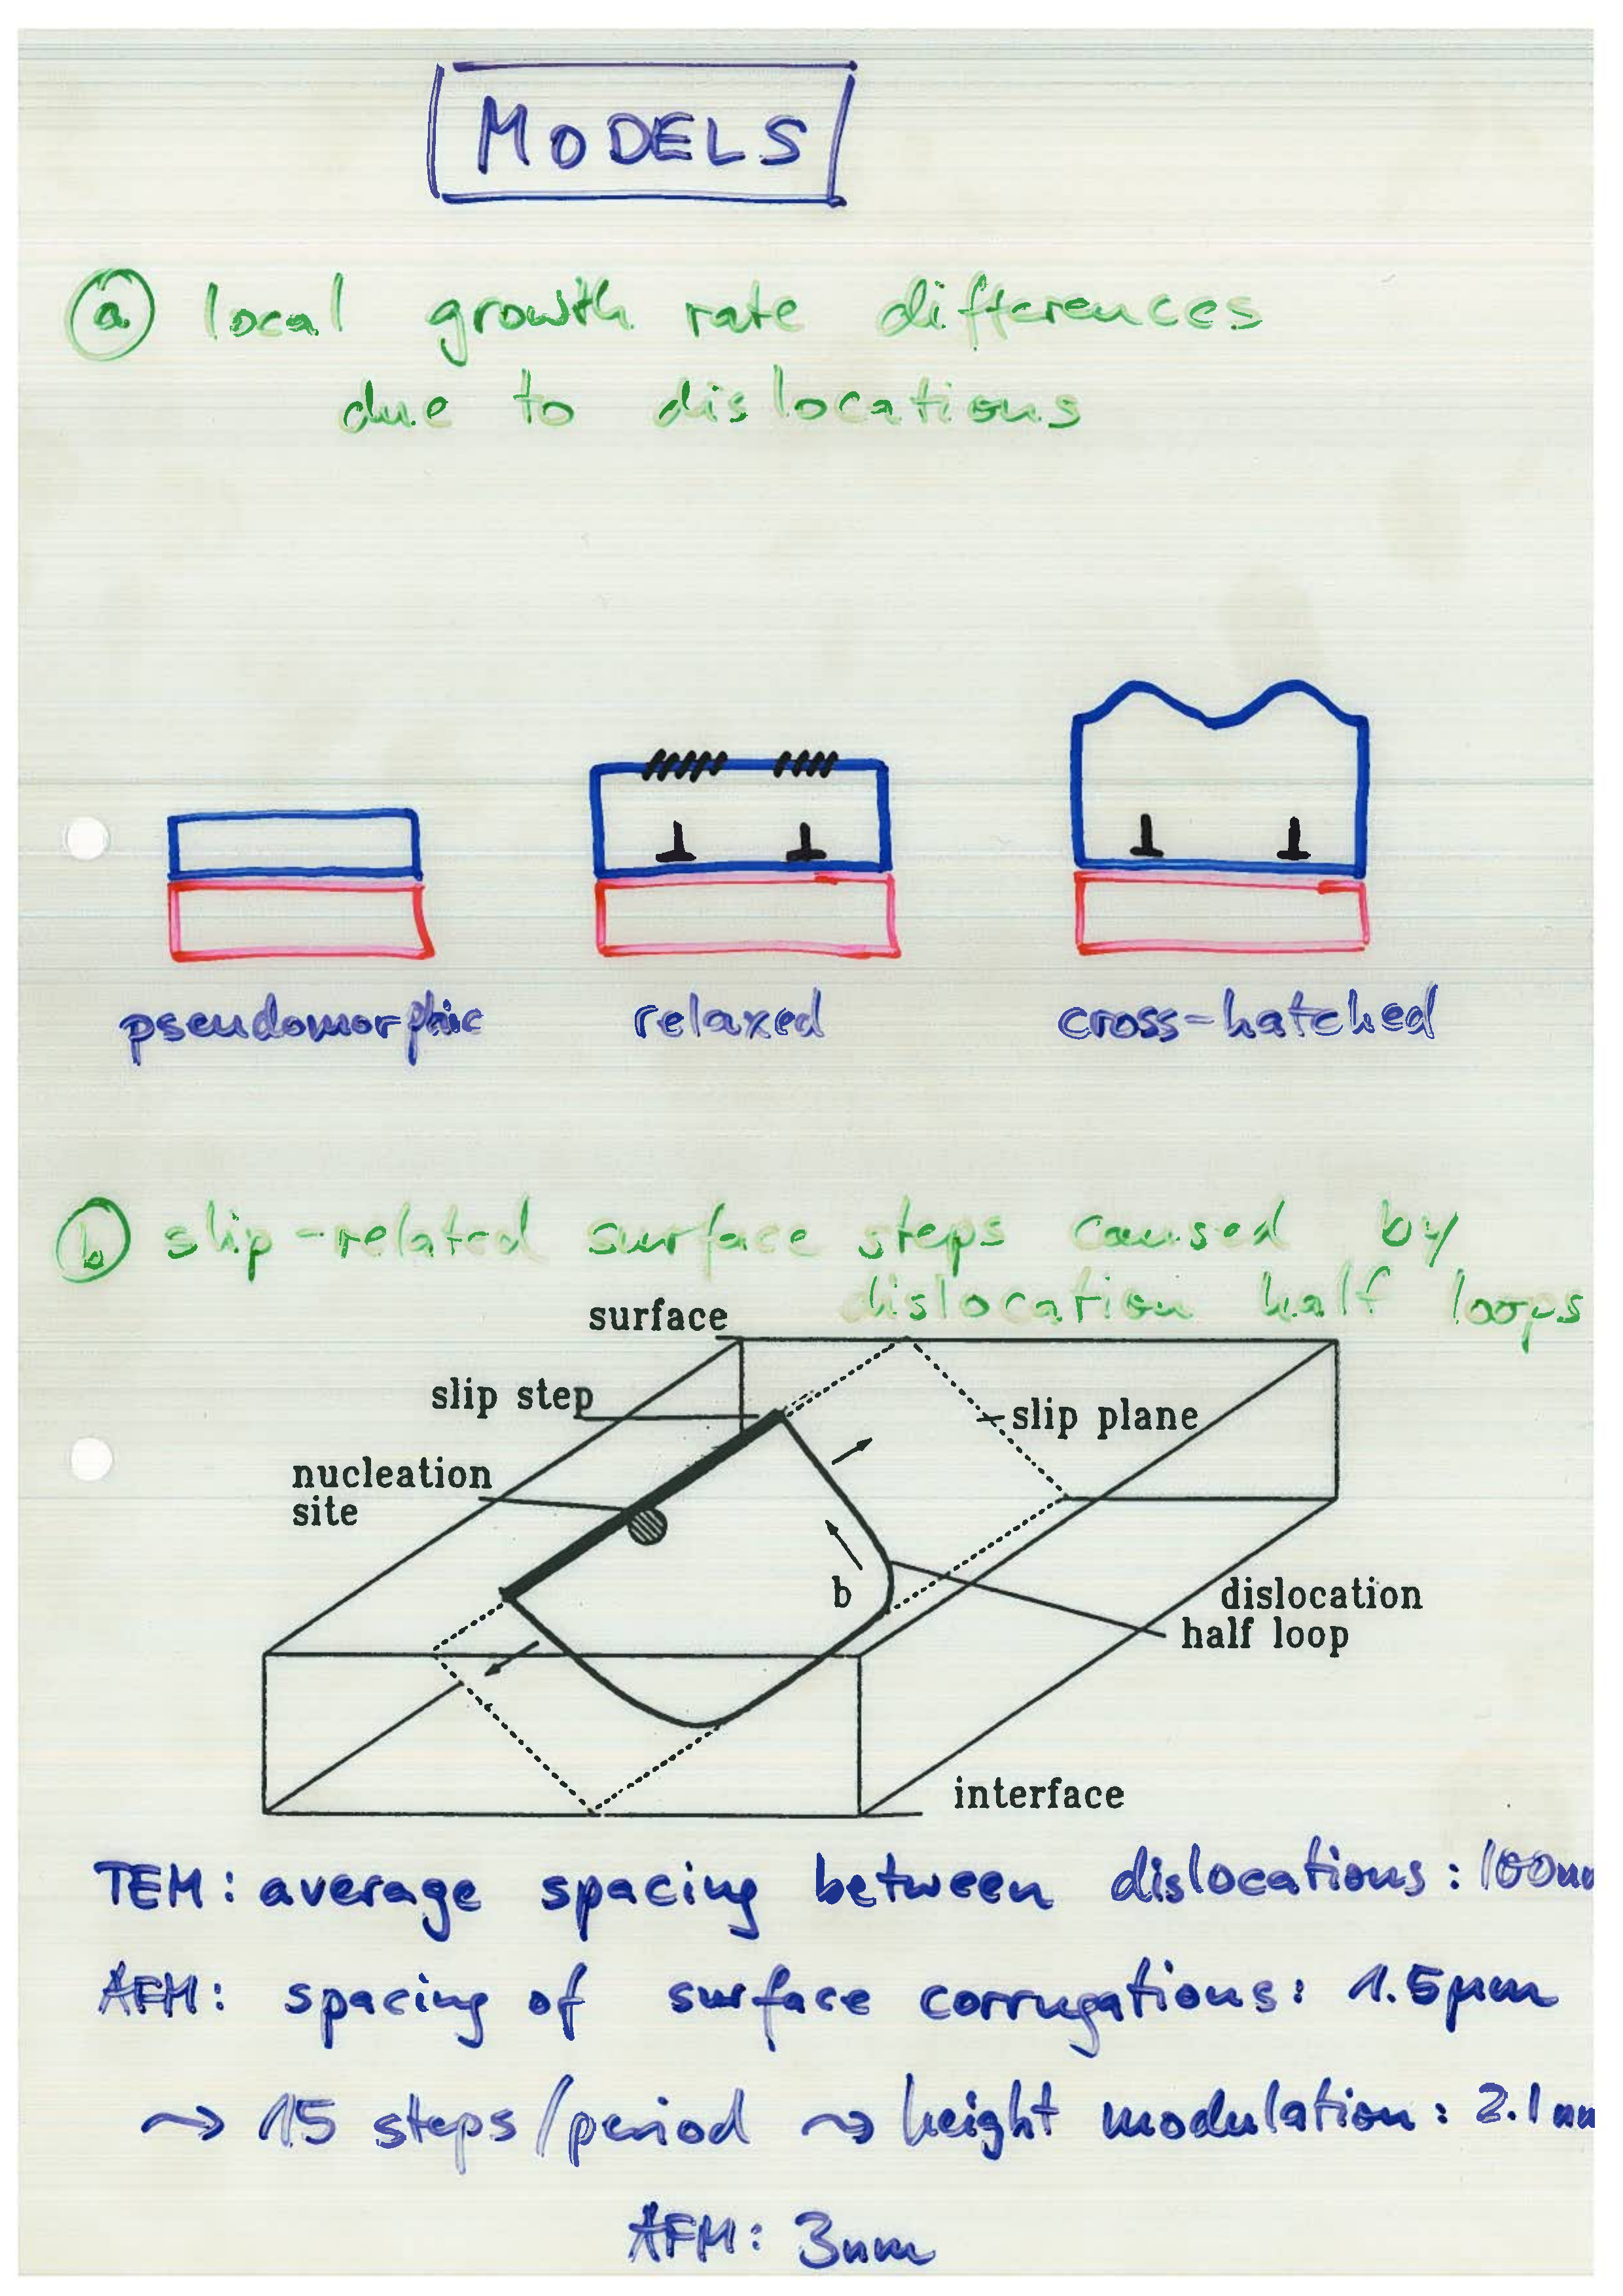 MODELS
ⓐ local growth rate differences
due to dislocations
pseudomorphic relaxed cross-hatched
ⓑ slip-related surface steps caused by
dislocation half loops
surface
slip step
slip plane
nucleation
site
b
dislocation
half loop
interface
TEM: average spacing between dislocations: 100nm
AFM: spacing of surface corrugations: 1.5µm
⤳ 15 steps/period ⤳ height modulation: 2.1nm
AFM: 3nm